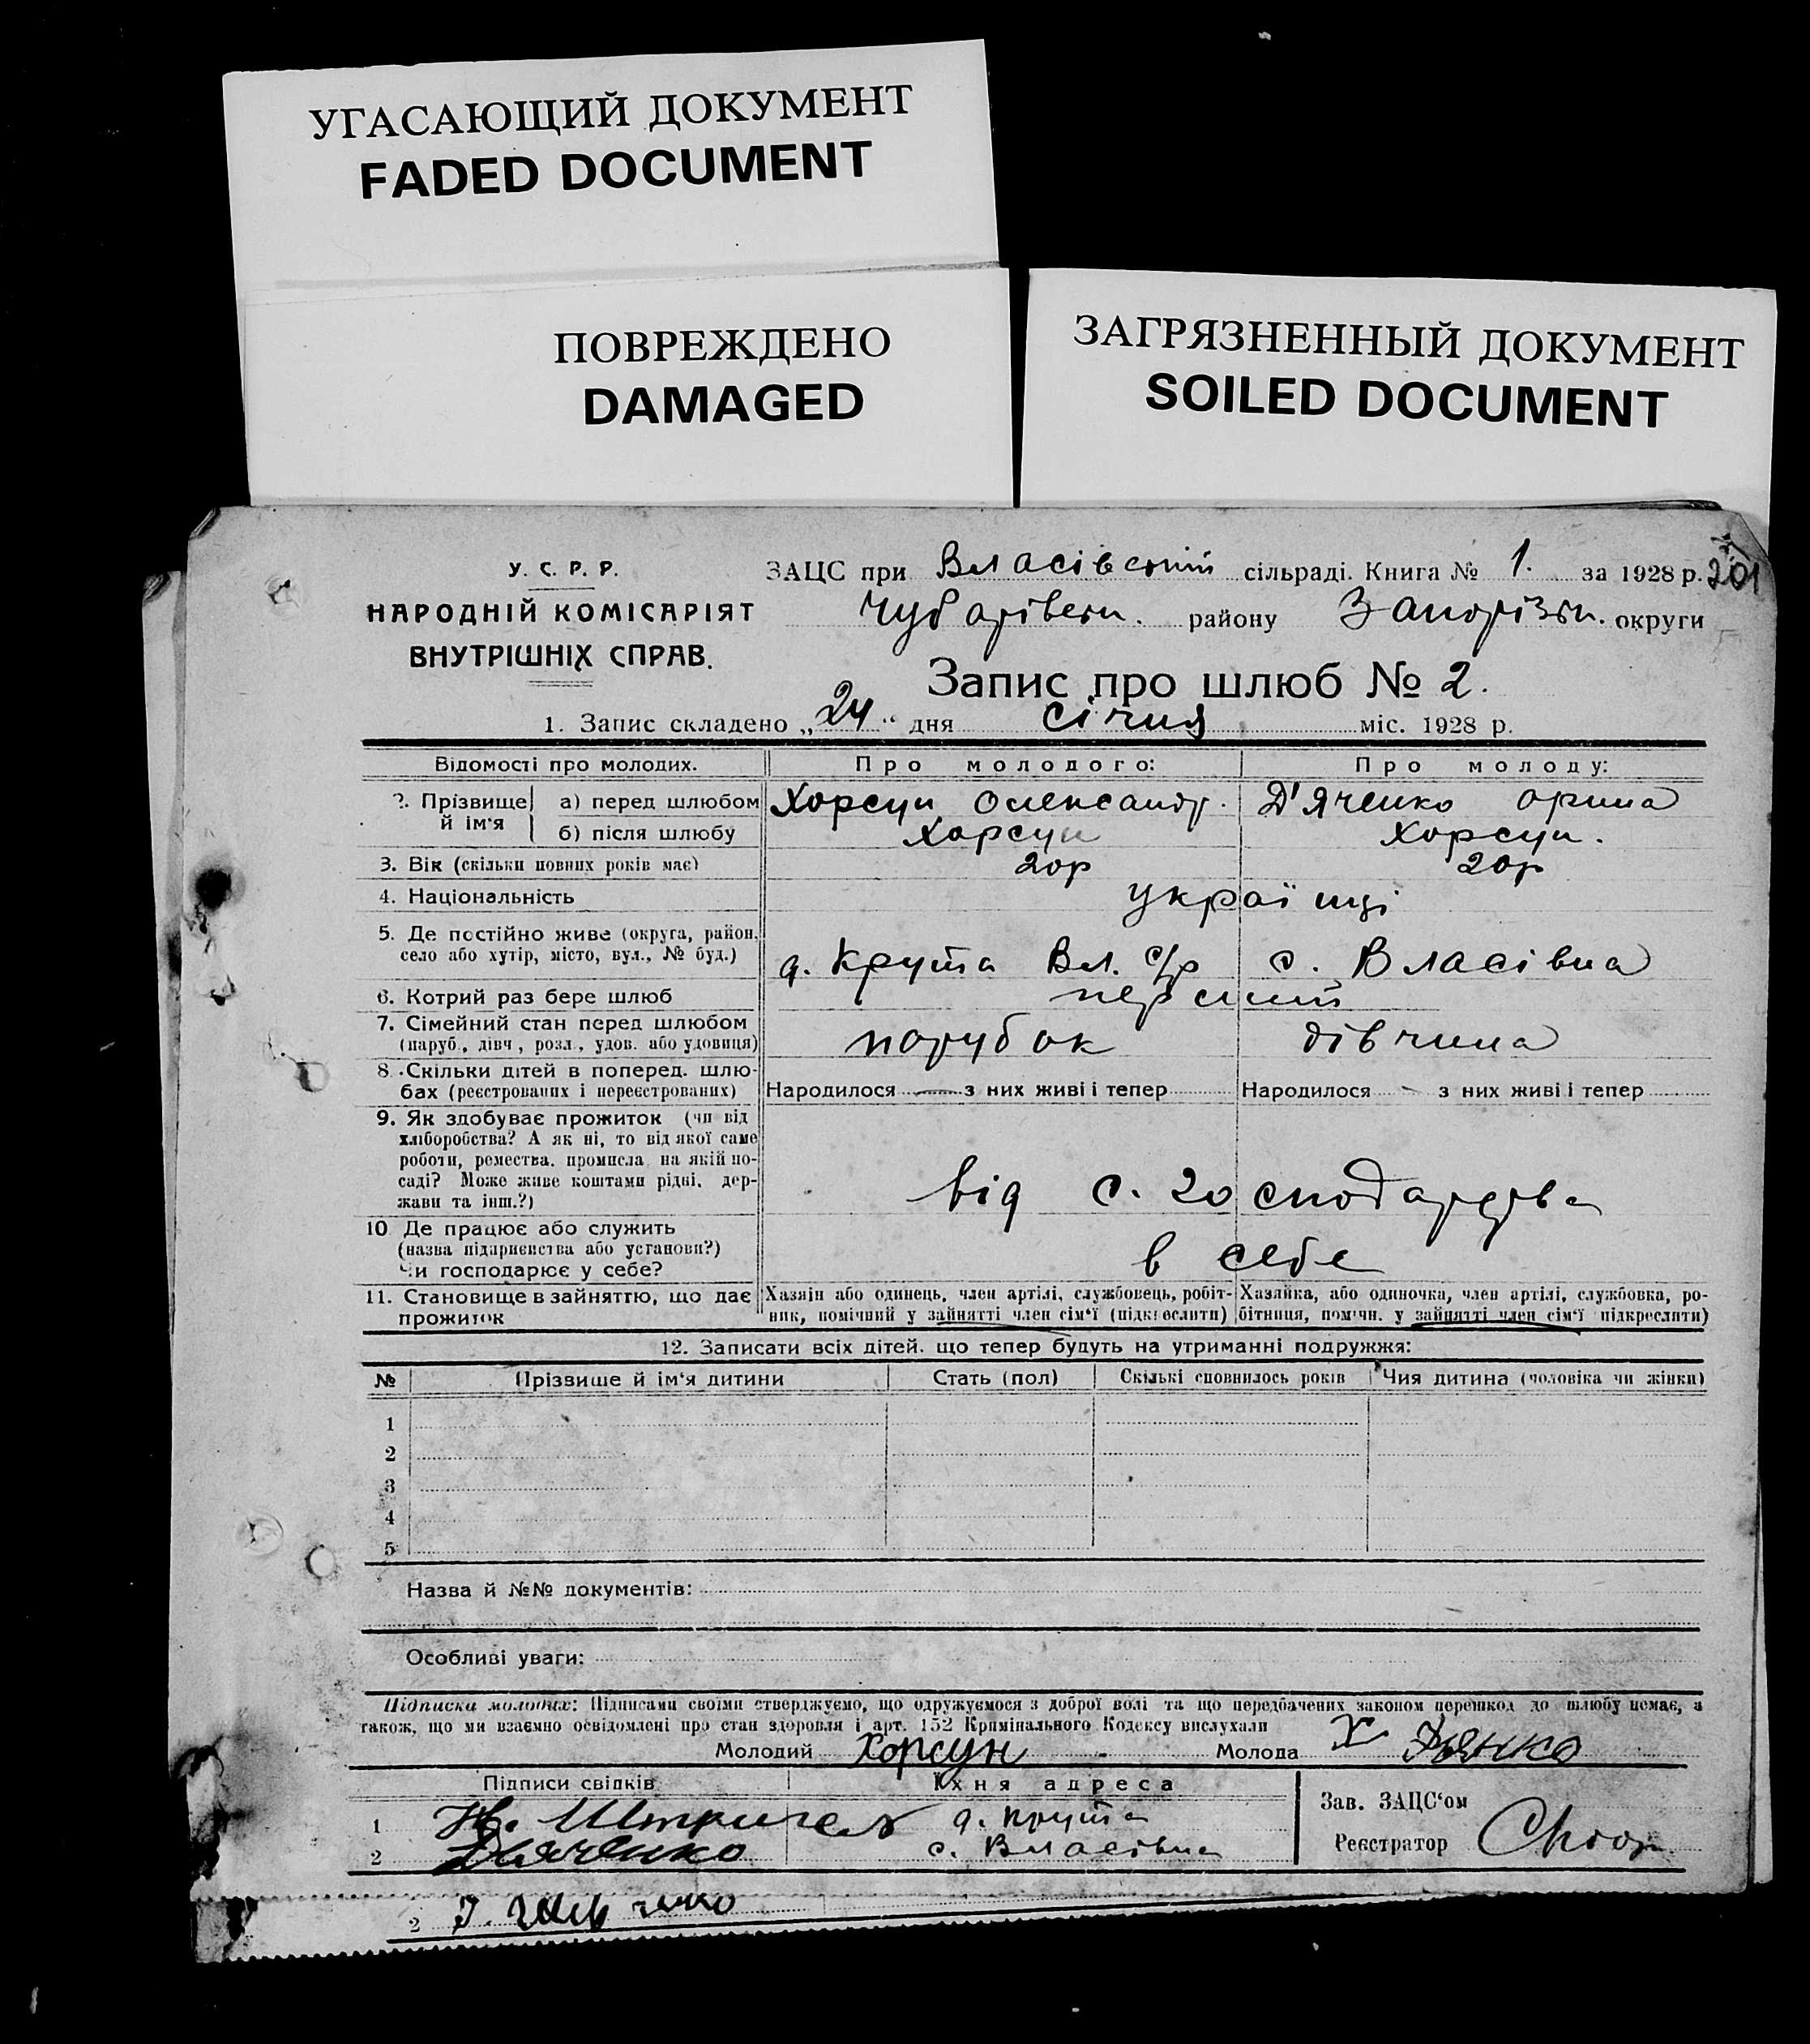 УГАСАЮЩИЙ ДОКУМЕНТ
FADED DOCUMENT
ПОВРЕЖДЕНО
DAMAGED
ЗАГРЯЗНЕННЫЙ ДОКУМЕНТ
SOILED DOCUMENT
У. С. Р. Р.
НАРОДНІЙ КОМІСАРІЯТ
ВНУТРІШНІХ СПРАВ.
ЗАЦС при Власівській сільраді. Книга № 1. за 1928 р. 201
Чубарівськ. району Запорізьк. округи
Запис про шлюб № 2.
1. Запис складено „24“ дня січня міс. 1928 р.
Відомості про молодих. Про молодого: Про молоду:
2. Прізвище й ім'я а) перед шлюбом Хорсун Олександр. Д'яченко Орина
б) після шлюбу Хорсун Хорсун.
3. Вік (скільки повних років має) 20р 20р
4. Національність українці
5. Де постійно живе (округа, район,
село або хутір, місто, вул., № буд.) д. Крута Вл. с/р с. Власівка
6. Котрий раз бере шлюб перший
7. Сімейний стан перед шлюбом
(паруб., дівч., розл., удов. або удовиця) порубок дівчина
8. Скільки дітей в поперед. шлю-
бах (реєстрованих і нереєстрованих) Народилося — з них живі і тепер Народилося – з них живі і тепер
9. Як здобуває прожиток (чи від
хліборобства? А як ні, то від якої саме
роботи, ремества, промисла, на якій по-
саді? Може живе коштами рідні, дер-
жави та інш.?) від с. господарства
10 Де працює або служить
(назва підприємства або установи?)
Чи господарює у себе? в себе
11. Становище в зайняттю, що дає
прожиток
Хазяін або одинець, член артілі, службовець, робіт-
ник, помічний у зайнятті член сім'ї (підкреслити)
Хазяйка, або одиночка, член артілі, службовка, ро-
бітниця, помічн. у зайнятті член сім'ї підкреслити)
12. Записати всіх дітей, що тепер будуть на утриманні подружжя:
№ Прізвище й ім'я дитини Стать (пол) Скількі сповнилось років Чия дитина (чоловіка чи жінки)
1
2
3
4
5
Назва й №№ документів:
Особливі уваги:
Підписи молодих: Підписами своїми стверджуємо, що одружуємося з доброї волі та що передбачених законом перешкод до шлюбу немає, а
також, що ми взаємно освідомлені про стан здоровля і арт. 152 Кримінального Кодексу вислухали
Молодий Хорсун Молода Х
Підписи свідків Їхня адреса
1 д. Крута
2 Дьяченко с. Власівка
Зав. ЗАЦС'ом
Реєстратор
2